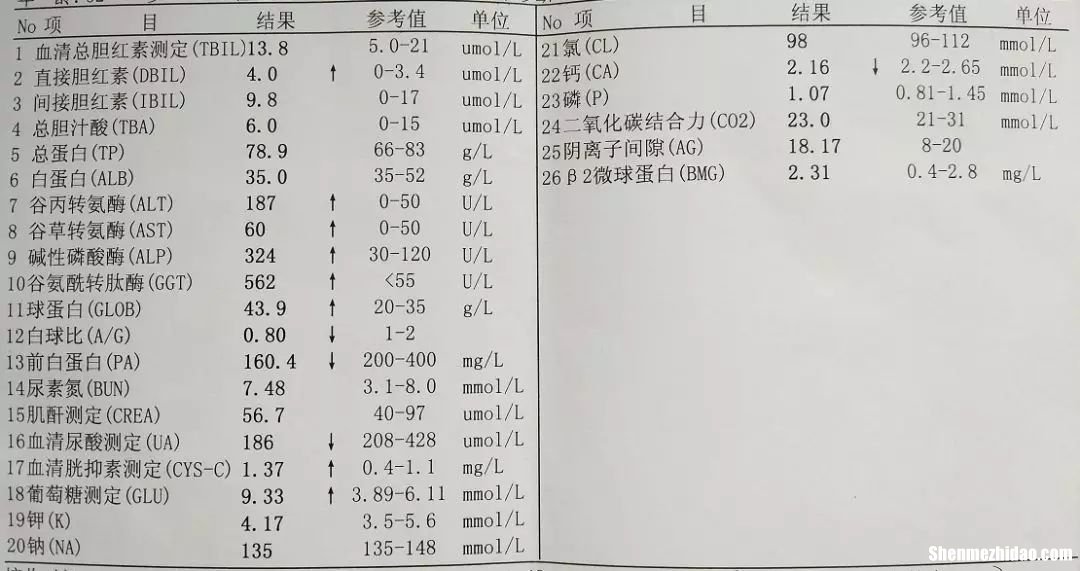 No 项 目 结果 参考值 单位
1 血清总胆红素测定(TBIL) 13.8 5.0-21 umol/L
2 直接胆红素(DBIL) 4.0 ↑ 0-3.4 umol/L
3 间接胆红素(IBIL) 9.8 0-17 umol/L
4 总胆汁酸(TBA) 6.0 0-15 umol/L
5 总蛋白(TP) 78.9 66-83 g/L
6 白蛋白(ALB) 35.0 35-52 g/L
7 谷丙转氨酶(ALT) 187 ↑ 0-50 U/L
8 谷草转氨酶(AST) 60 ↑ 0-50 U/L
9 碱性磷酸酶(ALP) 324 ↑ 30-120 U/L
10谷氨酰转肽酶(GGT) 562 ↑ <55 U/L
11球蛋白(GLOB) 43.9 ↑ 20-35 g/L
12白球比(A/G) 0.80 ↓ 1-2
13前白蛋白(PA) 160.4 ↓ 200-400 mg/L
14尿素氮(BUN) 7.48 3.1-8.0 mmol/L
15肌酐测定(CREA) 56.7 40-97 umol/L
16血清尿酸测定(UA) 186 ↓ 208-428 umol/L
17血清胱抑素测定(CYS-C) 1.37 ↑ 0.4-1.1 mg/L
18葡萄糖测定(GLU) 9.33 ↑ 3.89-6.11 mmol/L
19钾(K) 4.17 3.5-5.6 mmol/L
20钠(NA) 135 135-148 mmol/L
No 项 目 结果 参考值 单位
21氯(CL) 98 96-112 mmol/L
22钙(CA) 2.16 ↓ 2.2-2.65 mmol/L
23磷(P) 1.07 0.81-1.45 mmol/L
24二氧化碳结合力(CO2) 23.0 21-31 mmol/L
25阴离子间隙(AG) 18.17 8-20
26β2微球蛋白(BMG) 2.31 0.4-2.8 mg/L
Shenmezhidao.com